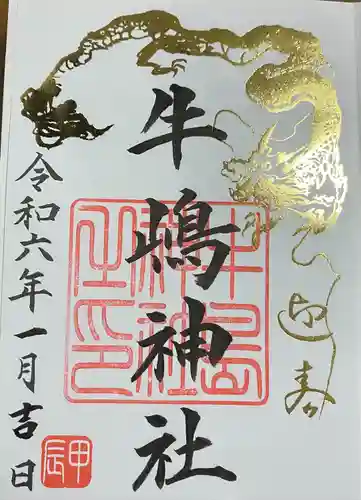 迎春
牛嶋神社
牛嶋神社之印
令和六年一月吉日
甲辰